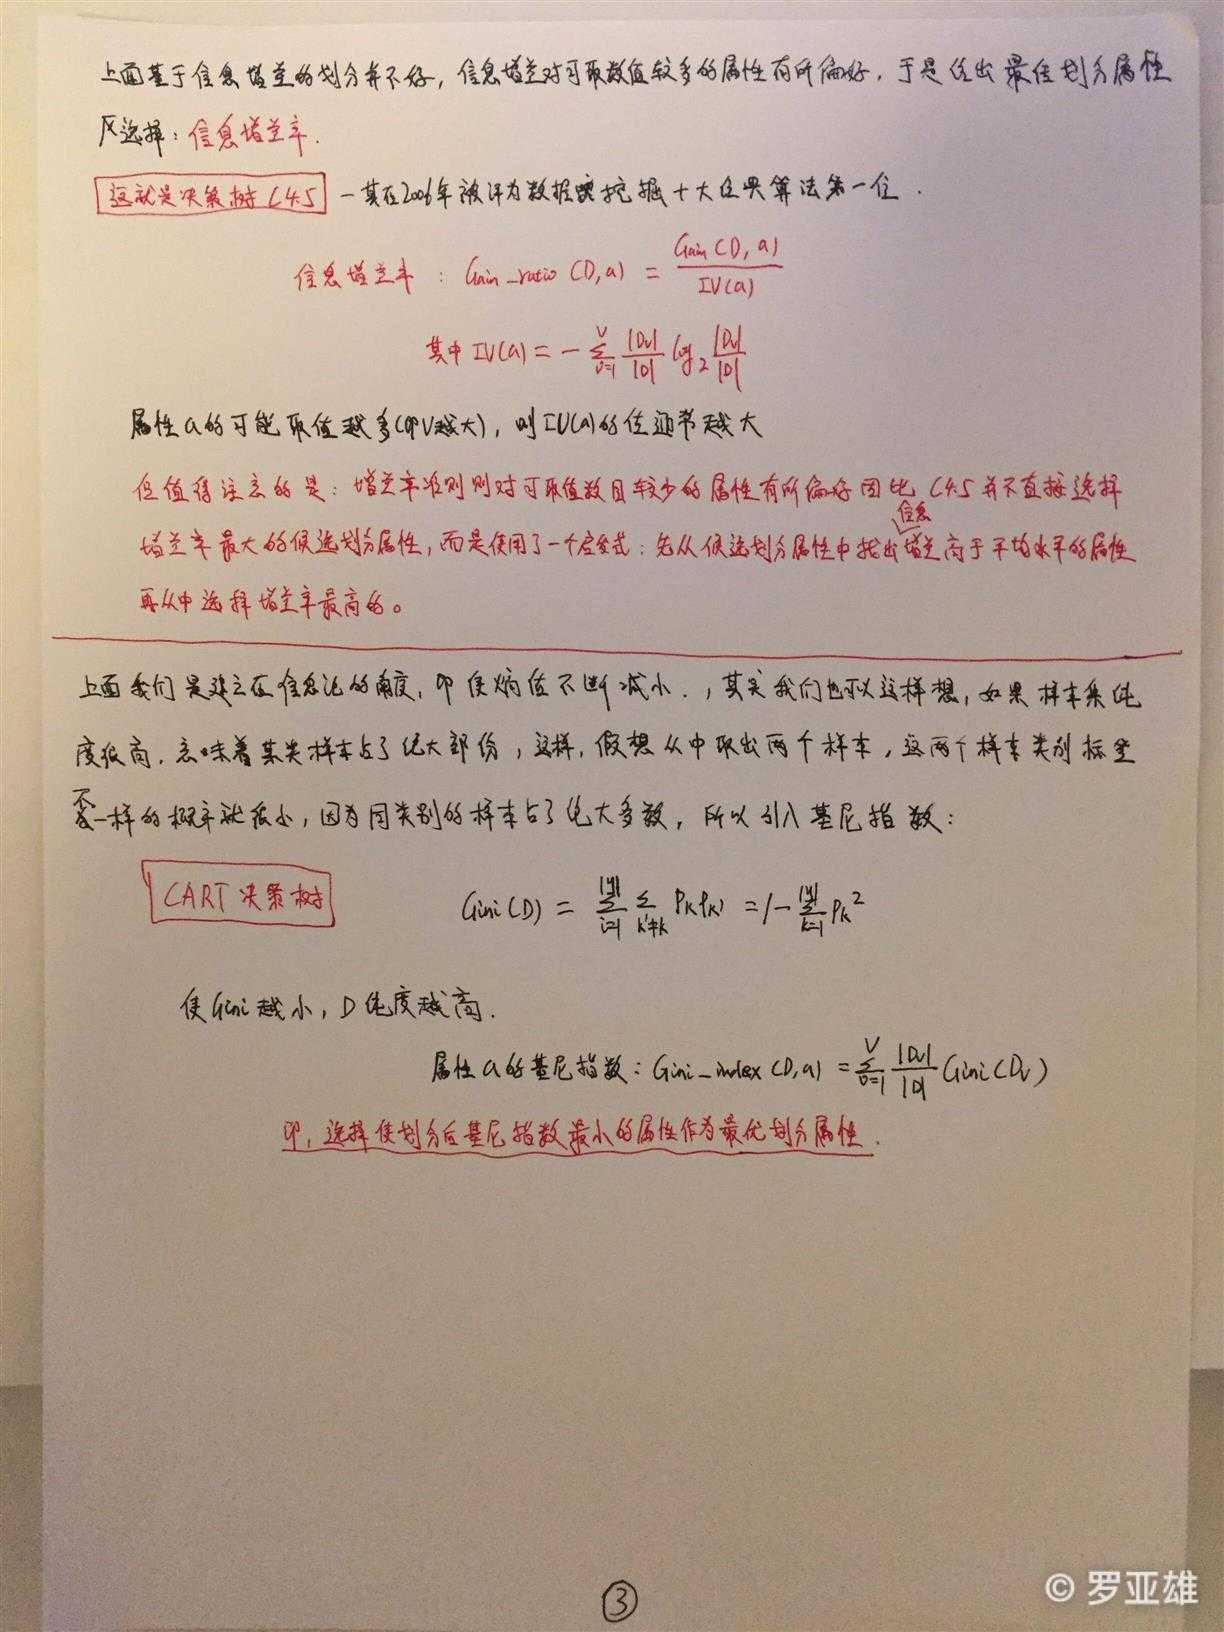 上面基于信息增益的划分并不好，信息增益对可取数值较多的属性有所偏好，于是 出最佳划分属性
选择：信息增益率.
这就是决策树C4.5 一其在2006年被评为数据挖掘十大经典算法第一位.
信息增益率：Gain_ratio (D,a) = Gain(D,a) / IV(a)
其中 IV(a) = - ∑_{v=1}^{V} |Dv|/|D| log₂ |Dv|/|D|
属性a的可能取值越多(即V越大)，则IV(a)的值通常越大
但值得注意的是：增益率准则则对可取值数目较少的属性有所偏好因此 C4.5并不直接选择
增益率最大的候选划分属性，而是使用了一个启发式：先从候选划分属性中找出信息增益高于平均水平的属性
再从中选择增益率最高的。
上面我们是建立在信息论的角度，即使熵值不断减小.，其实我们也可以这样想，如果样本集纯
度很高.意味着某类样本占了绝大部份，这样，假想从中取出两个样本，这两个样本类别标签
不一样的概率就很小，因为同类别的样本占了绝大多数，所以引入基尼指数：
CART决策树 Gini(D) = ∑_{i=1}^{|y|} ∑_{k'≠k} PkPk' = 1 - ∑_{k=1}^{|y|} Pk²
使Gini越小，D纯度越高.
属性a的基尼指数：Gini_index(D,a) = ∑_{v=1}^{V} |Dv|/|D| Gini(Dv)
即，选择使划分后基尼指数最小的属性作为最优划分属性.
③
© 罗亚雄